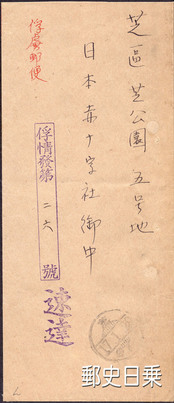 芝區芝公園五号地
日本赤十字社御中
俘虜郵便
俘情發第二六號
速達
郵史日乗